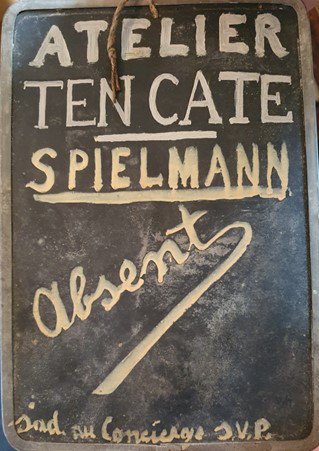 ATELIER
TEN CATE
SPIELMANN
Absent
au Concierge S.V.P.